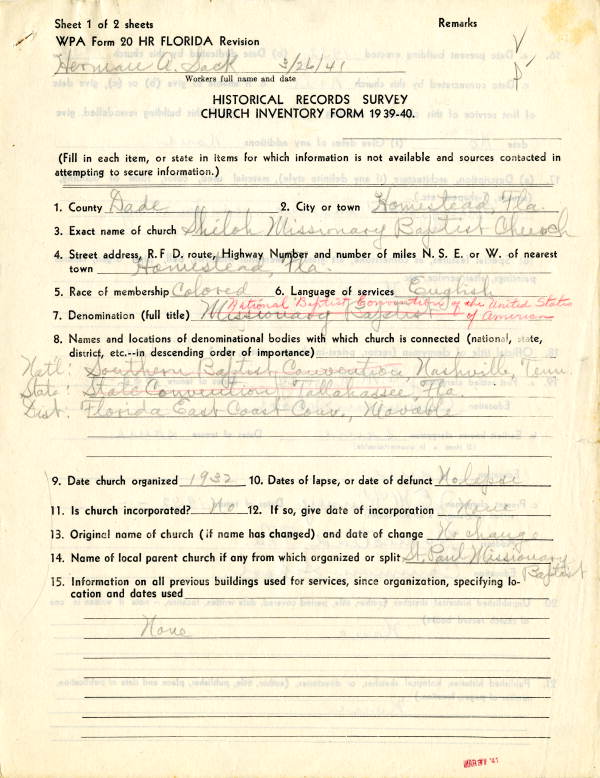 Sheet 1 of 2 sheets
Remarks
WPA Form 20 HR FLORIDA Revision
Herman A. Sack 3/26/41
Workers full name and date
HISTORICAL RECORDS SURVEY
CHURCH INVENTORY FORM 1939-40.
(Fill in each item, or state in items for which information is not available and sources contacted in
attempting to secure information.)
1. County Dade 2. City or town Homestead, Fla.
3. Exact name of church Shiloh Missionary Baptist Church
4. Street address, R.F D. route, Highway Number and number of miles N. S. E. or W. of nearest
town Homestead, Fla.
5. Race of membership Colored 6. Language of services English
National Baptist Convention of the United States
7. Denomination (full title) Missionary Baptist of American
8. Names and locations of denominational bodies with which church is connected (national, state,
district, etc.--in descending order of importance)
Nat'l: Southern Baptist Convention, Nashville, Tenn.
State: State Convention Tallahassee, Fla.
Dist: Florida East Coast Conv., Movable
9. Date church organized 1932 10. Dates of lapse, or date of defunct No lapse
11. Is church incorporated? No 12. If so, give date of incorporation None
13. Original name of church (if name has changed) and date of change No change
14. Name of local parent church if any from which organized or split St. Paul Missionary
Baptist
15. Information on all previous buildings used for services, since organization, specifying lo-
cation and dates used
None